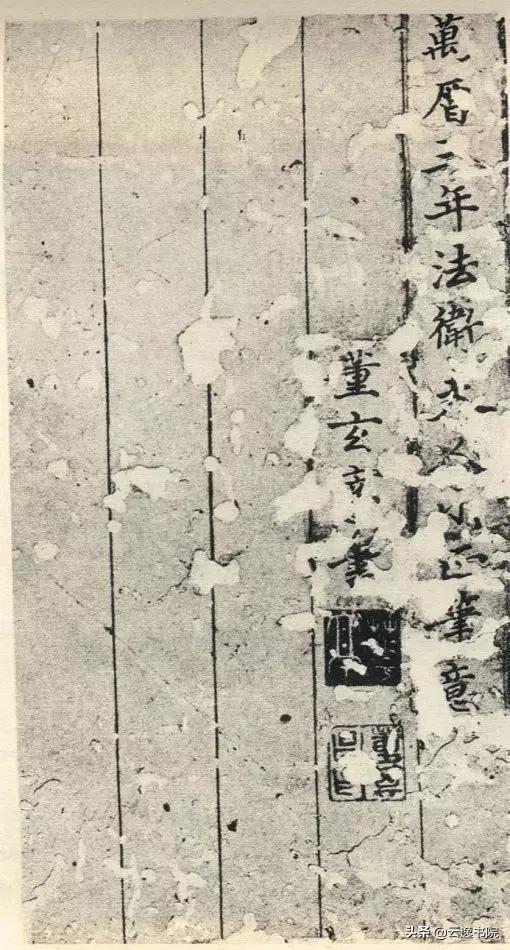 萬曆三年法衛夫人小正筆意
董玄宰書
头条 @云逸书院